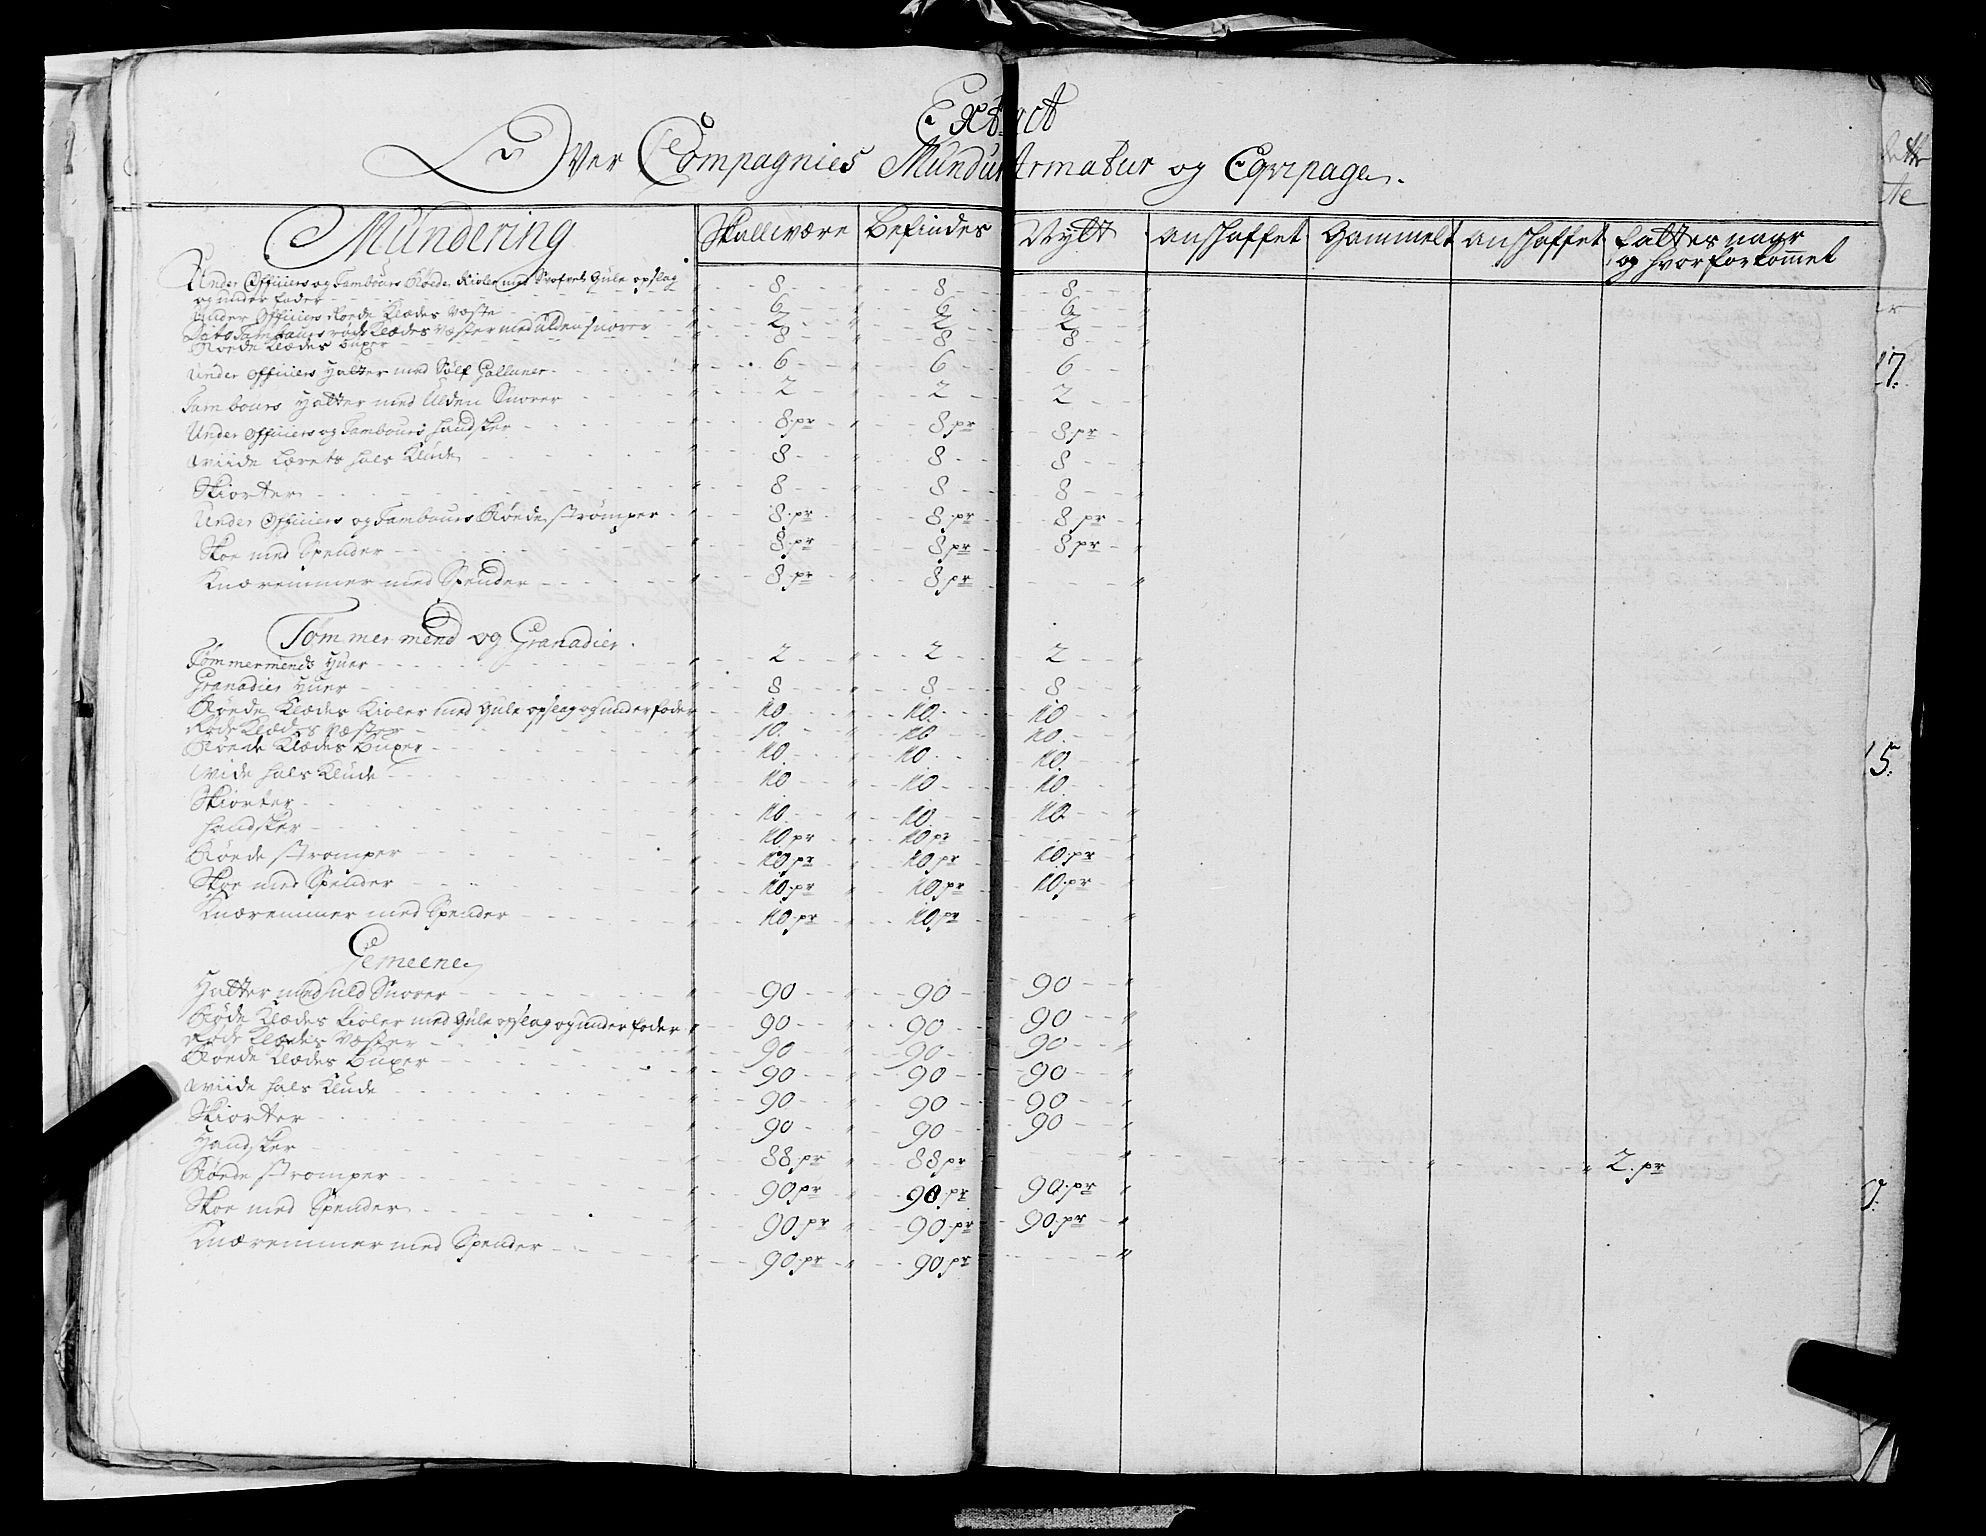 Extract
Over Compagnies Mundur Armatur og Eqvipage.
Mundering Skallivære Befindes Nÿtt anskaffet Gammelt anskaffet fattes naar
og hvor forkommet
Under Officiers og Tambours Röede Kioler med Gule opslag 8 8 8
og under foder
Under Officiers Röede Klædes Væste 6 6 6
Dito Tambours röde Klædes Væster med ulden snorer 2 2 2
Röede Klædes buxer 8 8 8
Under Officiers Hatter med Sölf Galluner 6 6 6
Tambours Hatter med Ulden Snorer 2 2 2
Under Officiers og Tambours handsker 8 pr 8 pr 8 pr
Wiide Lærets hals Klude 8 8 8
Skiorter 8 8 8
Under Officiers og Tambours Röede strömper 8 pr 8 pr 8 pr
Skoe med Spender 8 pr 8 pr 8 pr
Knæremmer med Spender 8 pr 8 pr
Tömmermend og Granadier.
Tömmermends Huer 2 2 2
Granadier Huer 8 8 8
Röede Klædes Kioler med Gule opslag og under foder 10 10 10
Röde Klædes Væster 10 10 10
Röede Klædes Buxer 10 10 10
Wide hals Klude 10 10 10
Skiorter 10 10 10
handsker 10 pr 10 pr
Röede strømper 10 pr 10 pr 10 pr
Skoe med Spender 10 pr 10 pr 10 pr
Knæremmer med Spender 10 pr 10 pr
Gemeene
Hatter med uld Snorer 90 90 90
Röde Klædes kioler med Gule opslag og under foder 90 90 90
Röde Klædes Væster 90 90 90
Röede Klædes Buxer 90 90 90
Wiide hals Klude 90 90 90
Skiorter 90 90 90
Handsker 88 pr 88 pr 2 pr
Röede strømper 90 pr 90 pr 90 pr
Skoe med Spender 90 pr 90 pr 90 pr
Knæremmer med Spender 90 pr 90 pr